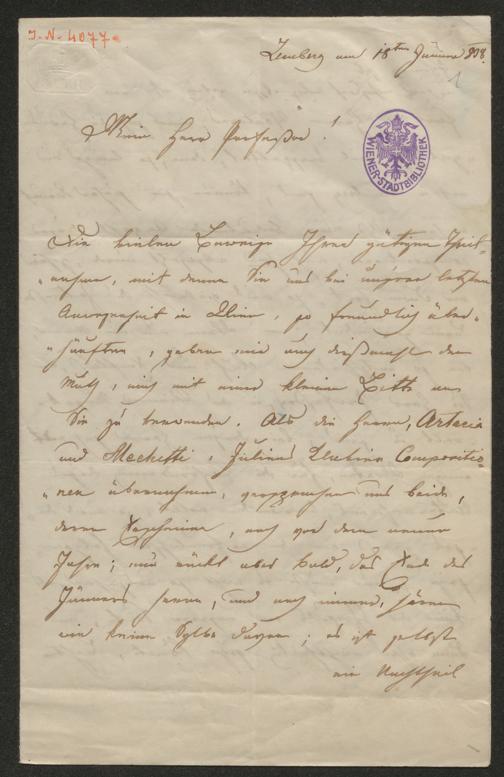 I.N. 4077
Lemberg am 18ten Jänner 838.
1
Mein Herr Professor!
WIENER-STADTBIBLIOTHEK
Die vielen Beweise Ihrer gütigen Theil-
nahme, mit denen Sie uns bei unserer letzten
Anwesenheit in Wien, so freundlich über-
häuften, geben mir auch dießmahl den
Muth, mich mit einer kleinen Bitte an
Sie zu verwenden. Als die Herrn, Artaria
und Mechetti, Julians Compositio-
nen übernahmen, versprachen uns beide,
deren Erscheinen, noch vor dem neuen
Jahre; nun rückt aber bald, das Ende des
Jänners heran, und noch immer, hören
wir keine Sylbe davon; es ist selbst
ein Nachtheil